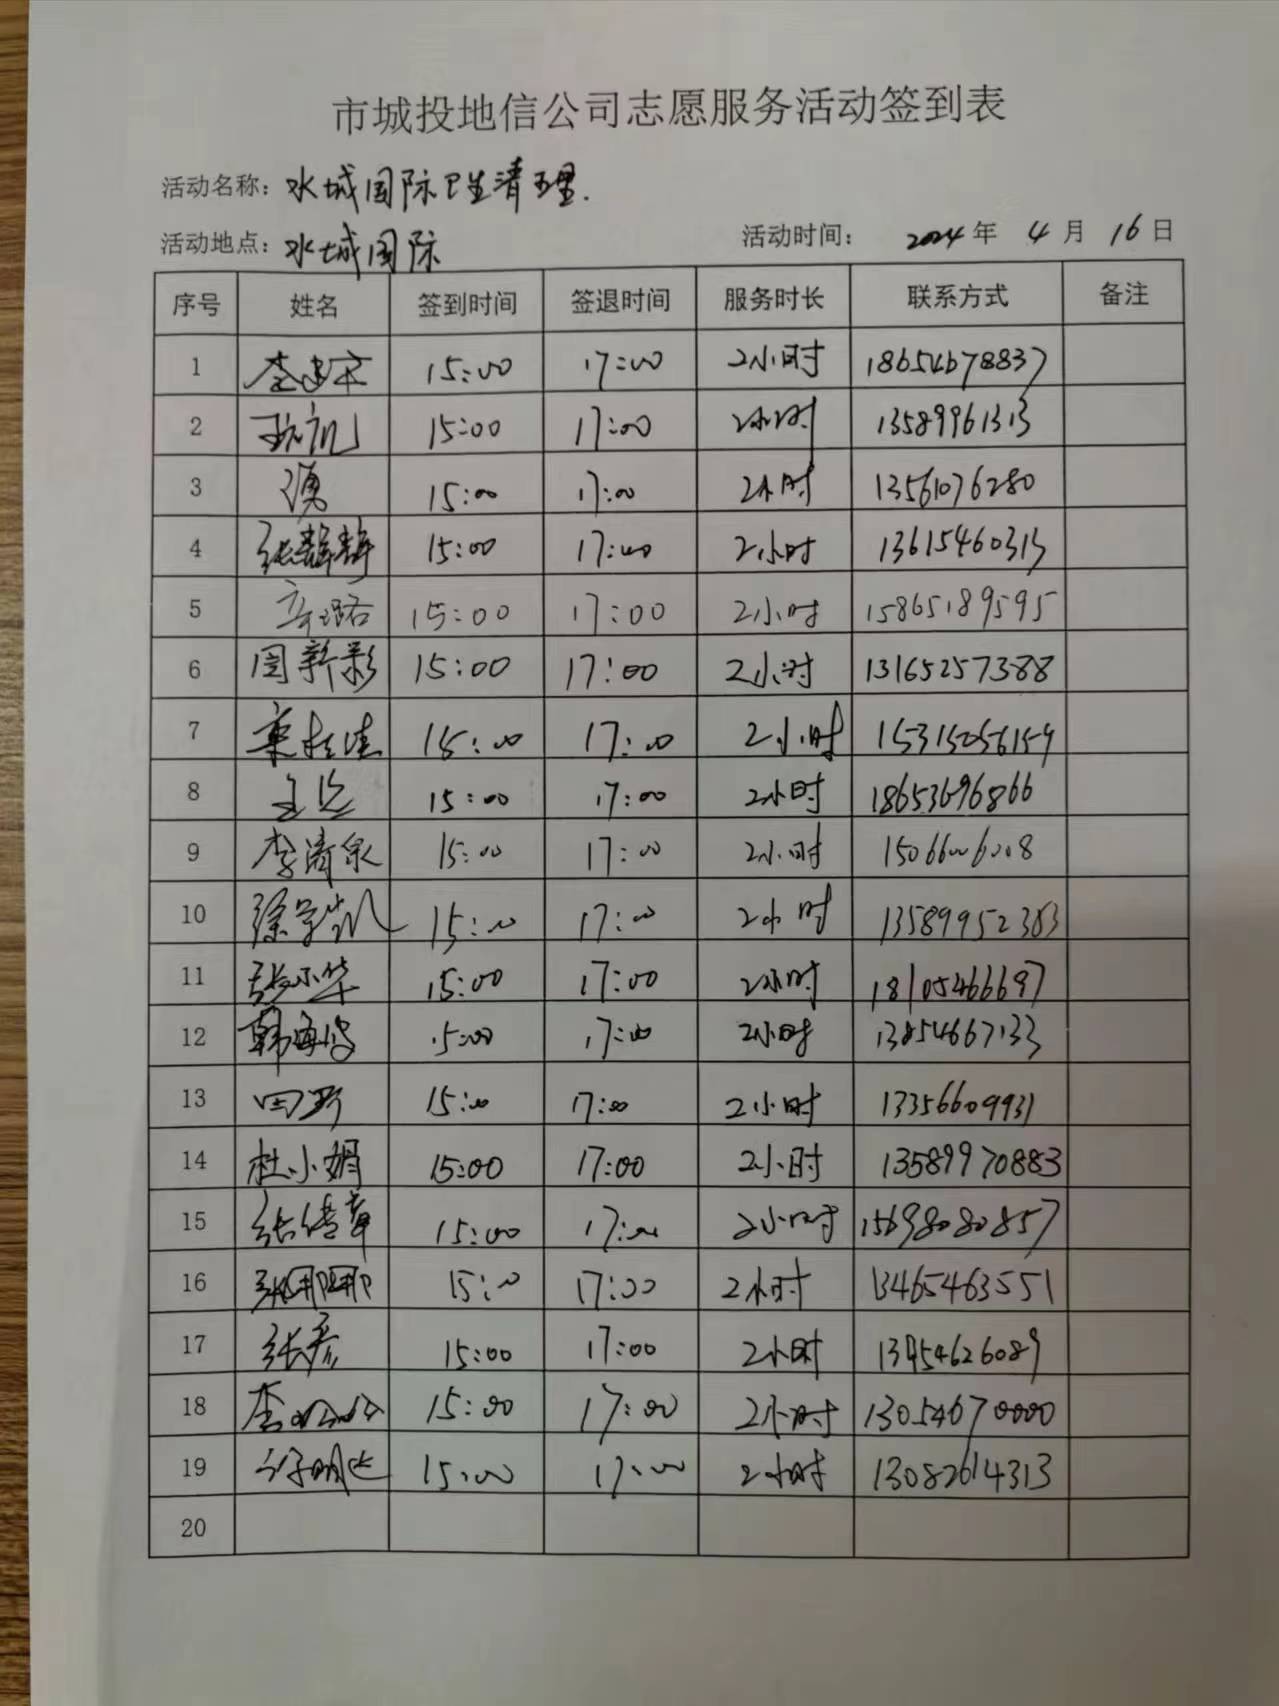 市城投地信公司志愿服务活动签到表
活动名称：水城国际卫生清理.
活动地点：水城国际 活动时间： 2024年 4月 16日
序号 姓名 签到时间 签退时间 服务时长 联系方式 备注
1 15:00 17:00 2小时 18654678837
2 15:00 17:00 2小时 13589961313
3 15:00 17:00 2小时 13561076280
4 张静静 15:00 17:00 2小时 13615460313
5 辛璐 15:00 17:00 2小时 15865189595
6 周新彩 15:00 17:00 2小时 13165257388
7 15:00 17:00 2小时 15315056159
8 15:00 17:00 2小时 18653696866
9 李清泉 15:00 17:00 2小时 15066006008
10 徐学凯 15:00 17:00 2小时 13589952383
11 张小华 15:00 17:00 2小时 18105466697
12 韩海波 15:00 17:00 2小时 13854667133
13 田野 15:00 17:00 2小时 13356609931
14 杜小娟 15:00 17:00 2小时 13589970883
15 张传章 15:00 17:00 2小时 15698080857
16 张娜娜 15:00 17:00 2小时 13465463551
17 张彦 15:00 17:00 2小时 13454626089
18 15:00 17:00 2小时 13054670000
19 15:00 17:00 2小时 13082614313
20